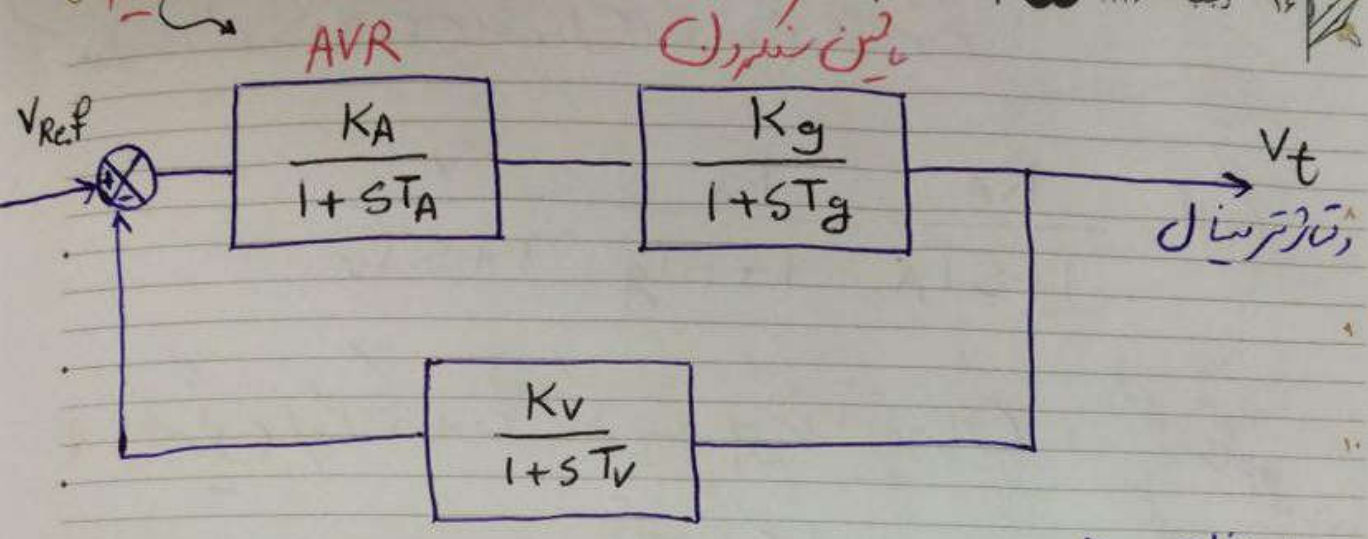 AVR
ماشین سنکرون
VRef
+
-
KA
1 + STA
Kg
1 + STg
Vt
ولتاژ ترمینال
Kv
1 + STv
۸
۹
۱۰